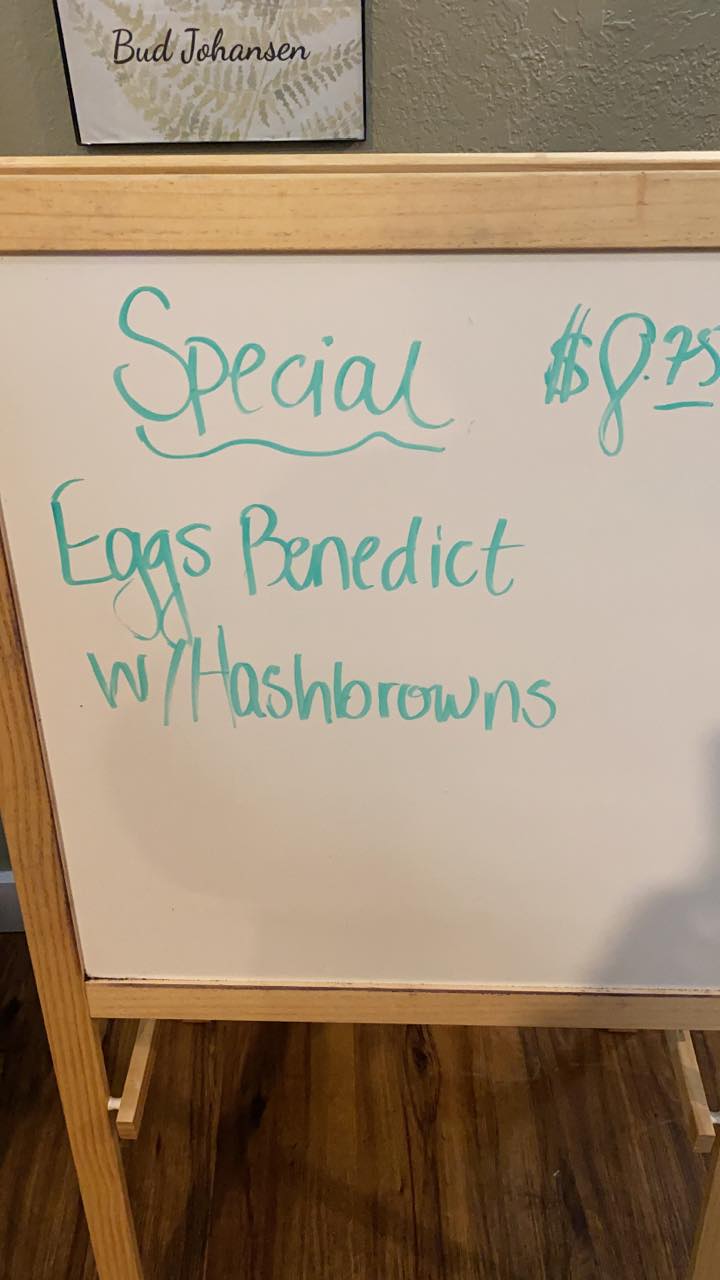 Bud Johansen
Special $8.75
Eggs Benedict
w/Hashbrowns